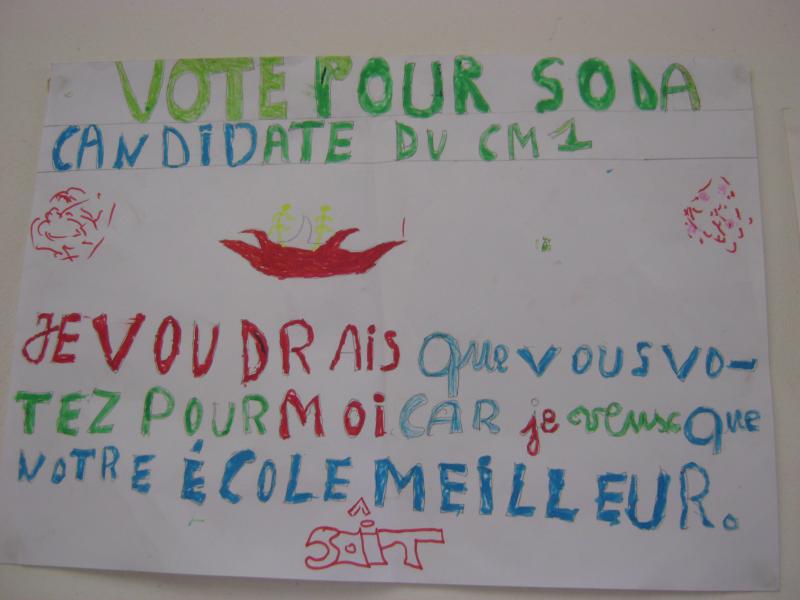 VOTE POUR SODA
CANDIDATE DU CM1
JE VOUDRAIS que VOUS VO-
TEZ POUR MOI CAR je veux que
NOTRE ÉCOLE MEILLEUR.
^
SOIT